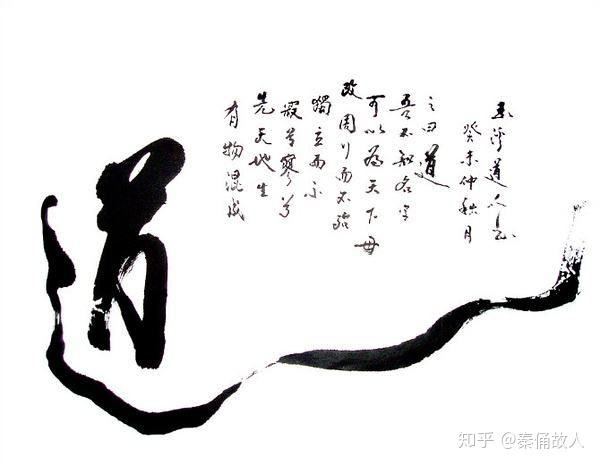 道
有物混成
先天地生
寂兮寥兮
獨立而不
改周行而不殆
可以為天下母
吾不知名字
之曰道
癸未仲秋月
道人
知乎 @秦俑故人